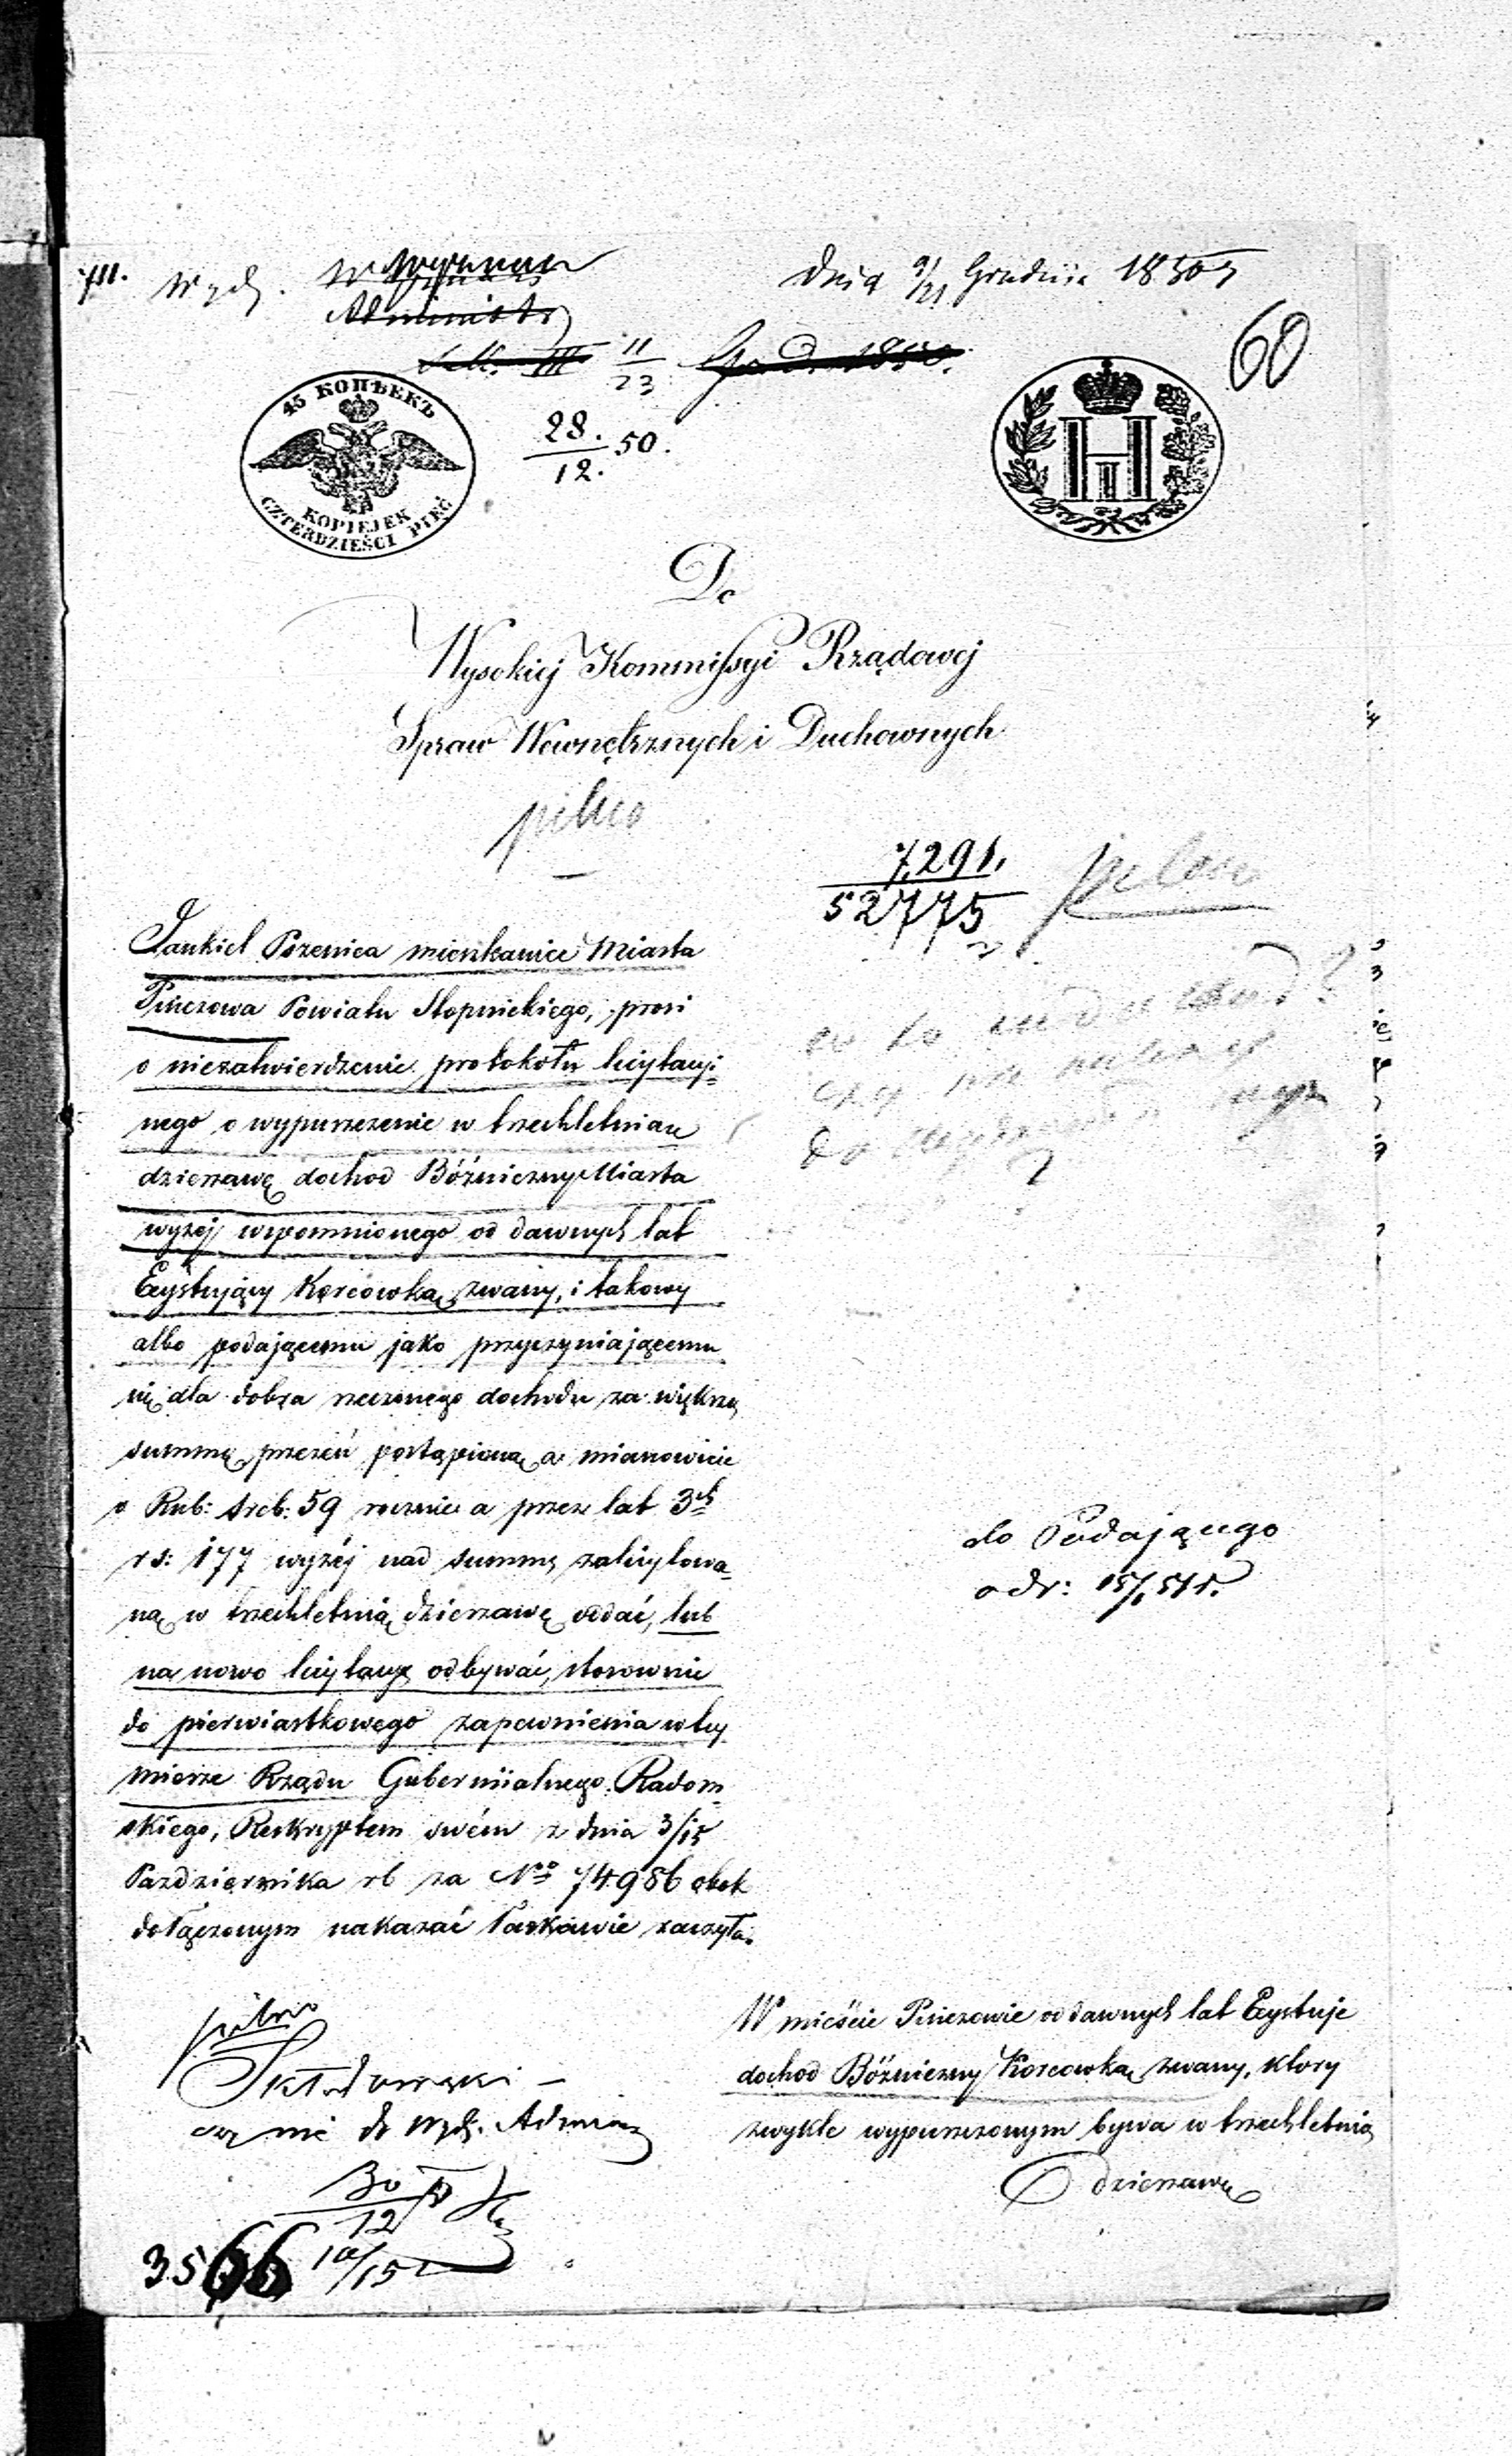 Wydz.
Dnia 9/21 Grudnia 1850 r
60
11/23
45 КОПѢЕКЪ
KOPIEJEK
CZTERDZIEŚCI PIĘĆ
28./12. 50.
Do
Wysokiej Kommissyi Rządowej
Spraw Wewnętrznych i Duchownych
pilno
7,291.
52775
pilno
Jankiel Pszenica mieszkaniec Miasta
Pińczowa Powiatu Stopnickiego, prosi
o niezatwierdzenie protokołu licytacyi-
nego o wypuszczenie w trzechletnią
dzierzawę dochod Bóżniczny Miasta
wyżej wspomnionego od dawnych lat
Exystujący Korcowką zwany, i takowy
albo podającemu jako przyczyniającemu
się dla dobra rzeczonego dochodu za większą
summę przezeń postąpioną a mianowicie
o Rub: Sreb: 59 rocznie a przez lat 3ch
rs: 177 wyżej nad summę zalicytowa-
ną w trzechletnią dzierzawę oddać, lub
na nowo licytacyę odbywać, stosownie
do pierwiastkowego zapewnienia w tey
mierze Rządu Gubernialnego Radom-
skiego, Reskryptem swém z dnia 3/15
Pazdziernika rb za No 74986 obok
dołączonym nakazać łaskawie raczyła.
do Podającego
W mieście Pińczowie od dawnych lat Exystuje
dochod Bóżniczny Korcowką zwany, ktory
zwykle wypuszczonym bywa w trzechletnią
dzierzawę
pilno
do Wydz. Admin
30/12
3566